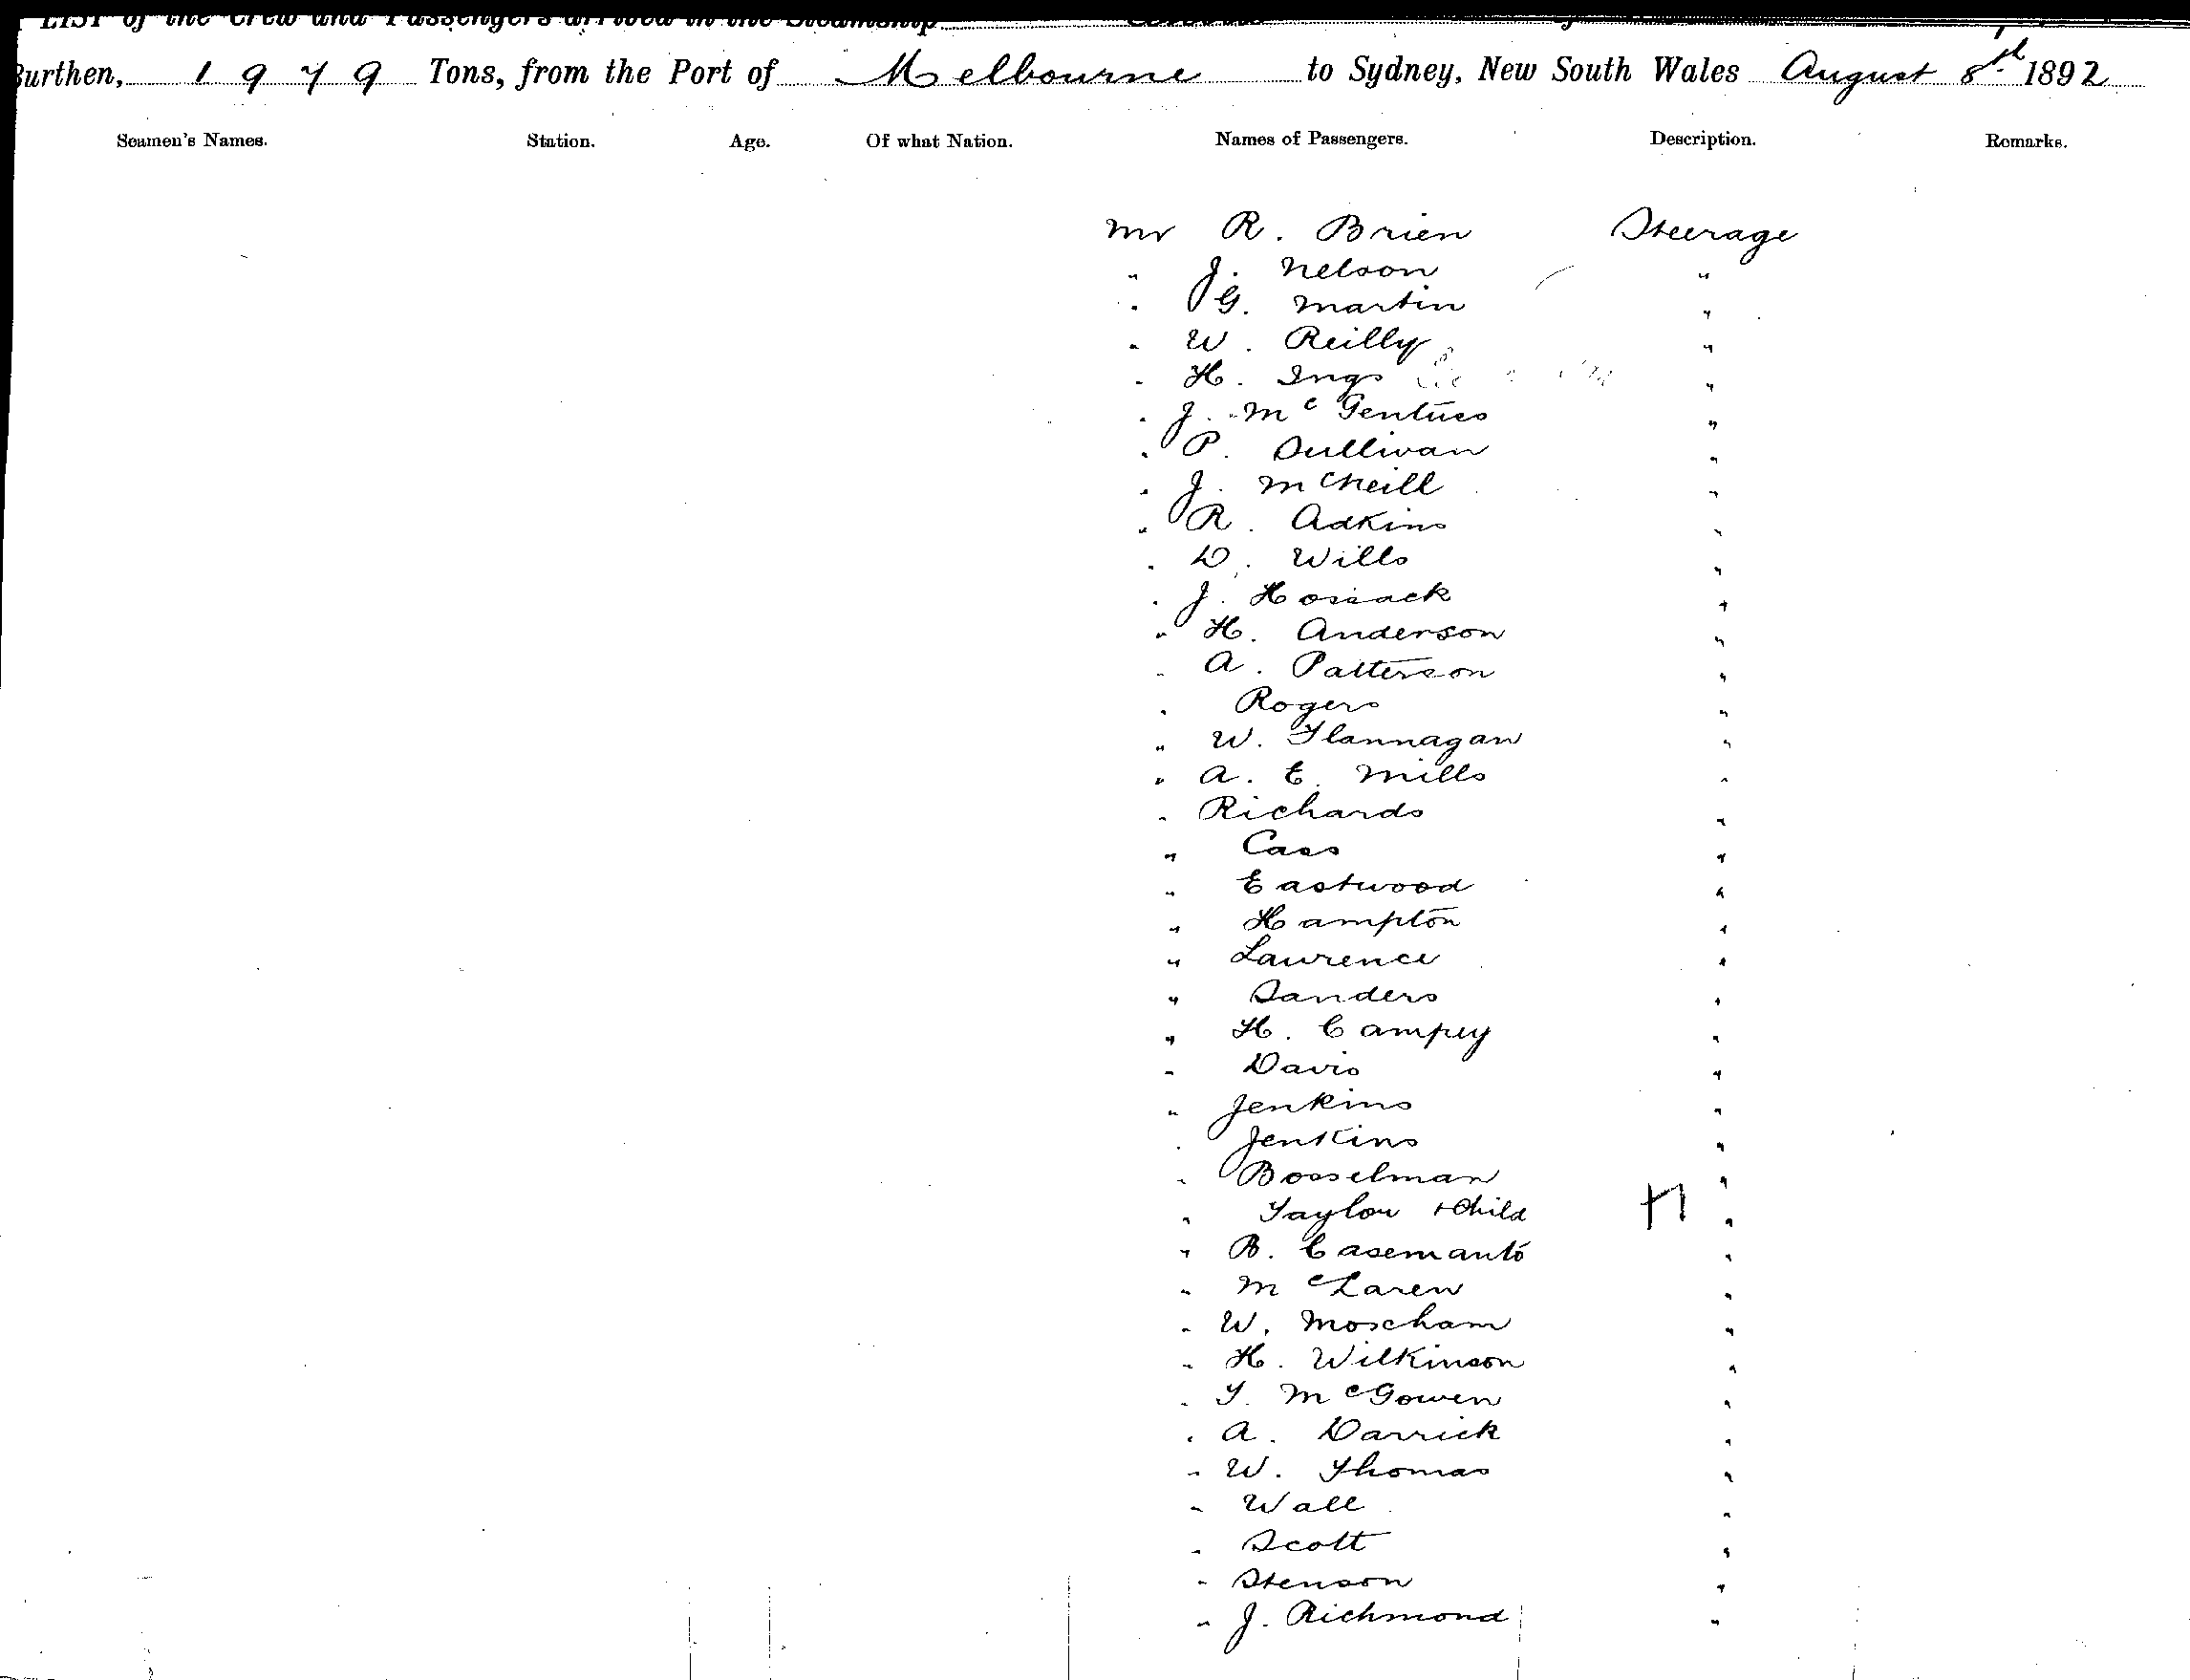 LIST of the Crew and Passengers arrived in the Steamship
Burthen, 1979 Tons, from the Port of Melbourne to Sydney, New South Wales August 8th 1892
Seamen's Names. Station. Age. Of what Nation. Names of Passengers. Description. Remarks.
Mr R. Brien Steerage
" J. Nelson "
" G. Martin "
" W. Reilly "
" H. Ings "
" J. McGentues "
" P. Sullivan "
" J. McNeill "
" R. Adkins "
" D. Wills "
" J. Hossack "
" H. Anderson "
" A. Patterson "
" Rogers "
" W. Flannagan "
" A. E. Mills "
" Richards "
" Cass "
" Eastwood "
" Hampton "
" Laurence "
" Sanders "
" H. Campey "
" Davis "
" Jenkins "
" Jenkins "
" Bosselman "
" Taylor + Child +1 "
" B. Casemanto "
" McLaren "
" W. Moscham "
" H. Wilkinson "
" T. McGowen "
" A. Darrick "
" W. Thomas "
" Wall "
" Scott "
" Stenson "
" J. Richmond "